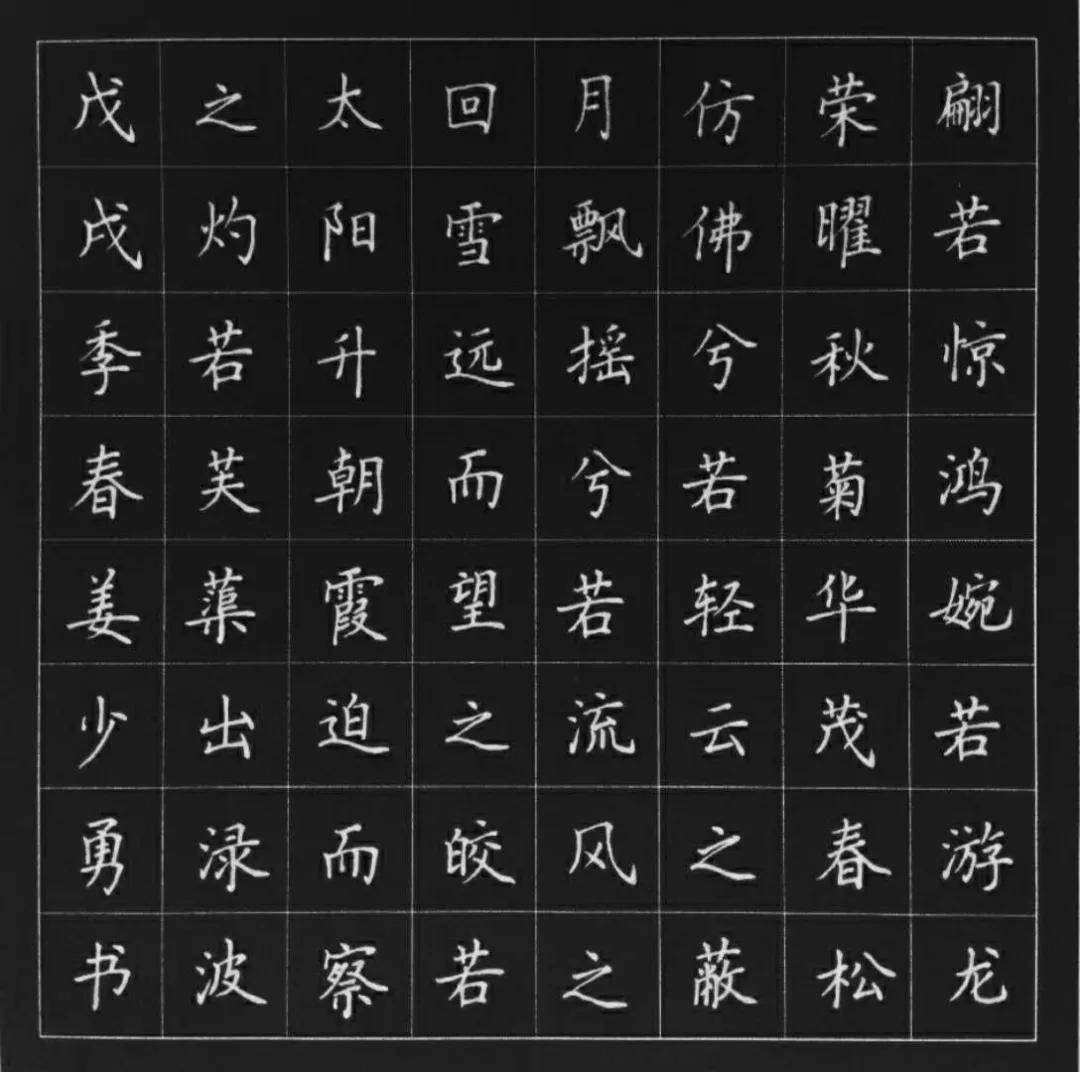 翩若惊鸿婉若游龙
荣曜秋菊华茂春松
仿佛兮若轻云之蔽
月飘摇兮若流风之
回雪远而望之皎若
太阳升朝霞迫而察
之灼若芙蕖出渌波
戊戌季春姜少勇书